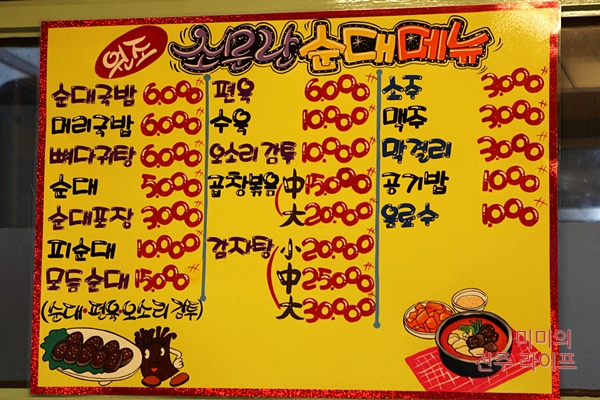 원조 조모란 순대메뉴
순대국밥 6.000
머리국밥 6.000
뼈다귀탕 6.000
순대 5.000
순대포장 3.000
피순대 10.000
모듬순대 15.000
(순대·편육·오소리감투)
편육 6.000
수육 10.000
오소리감투 10.000
곱창볶음 中 15.000
大 20.000
감자탕 小 20.000
中 25.000
大 30.000
소주 3.000
맥주 3.000
막걸리 3.000
공기밥 1.000
음료수 1.000
미미의
전주 라이프